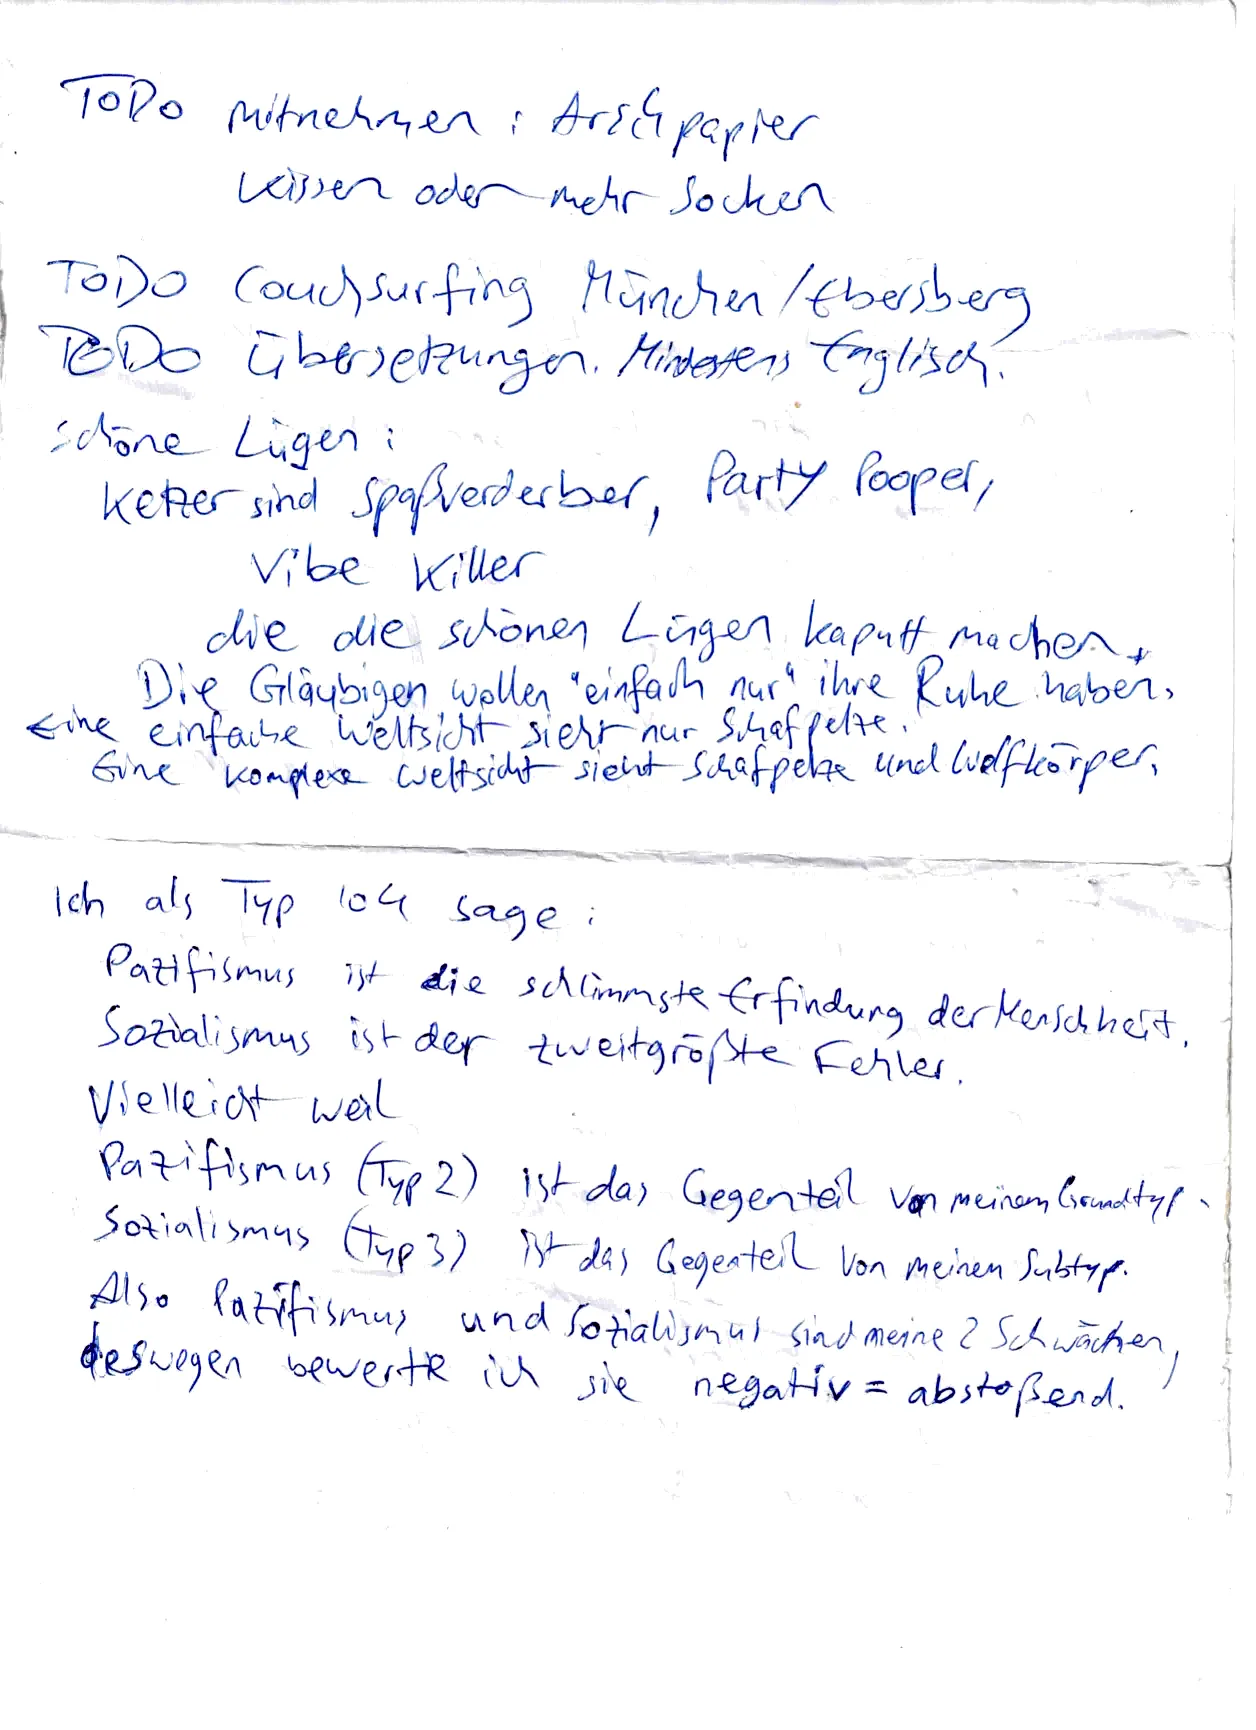 ToDo mitnehmen: Arschpapier
Kissen oder mehr Socken
ToDo Couchsurfing München/Ebersberg
ToDo Übersetzungen. Mindestens Englisch.
schöne Lügen:
Ketzer sind Spaßverderber, Party Pooper,
Vibe Killer
die die schönen Lügen kaputt machen.
Die Gläubigen wollen "einfach nur" ihre Ruhe haben.
Eine einfache Weltsicht sieht nur Schafpelze.
Eine komplexe Weltsicht sieht Schafpelze und Wolfkörper.
Ich als Typ 104 sage:
Pazifismus ist die schlimmste Erfindung der Menschheit.
Sozialismus ist der zweitgrößte Fehler.
Vielleicht weil
Pazifismus (Typ 2) ist das Gegenteil von meinem Grundtyp.
Sozialismus (Typ 3) ist das Gegenteil von meinem Subtyp.
Also Pazifismus und Sozialismus sind meine 2 Schwächen,
deswegen bewerte ich sie negativ = abstoßend.